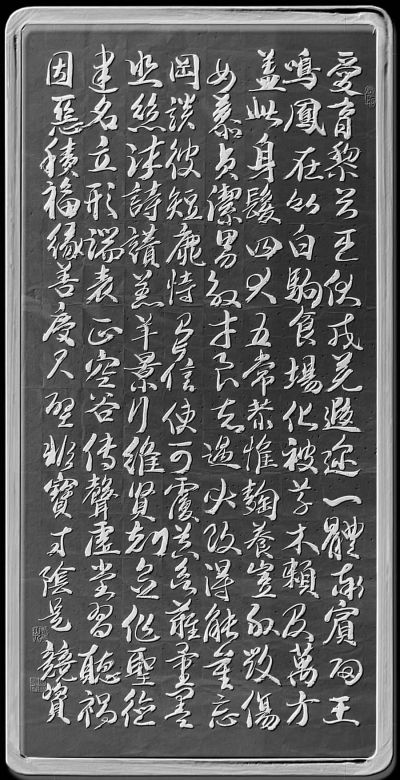 愛育黎首臣伏戎羌遐邇一體率賓歸王
鳴鳳在竹白駒食場化被草木賴及萬方
蓋此身髮四大五常恭惟鞠養豈敢毀傷
女慕貞潔男效才良知過必改得能莫忘
罔談彼短靡恃己長信使可覆器欲難量墨
悲絲染詩讚羔羊景行維賢剋念作聖德
建名立形端表正空谷傳聲虛堂習聽禍
因惡積福緣善慶尺璧非寶寸陰是競資